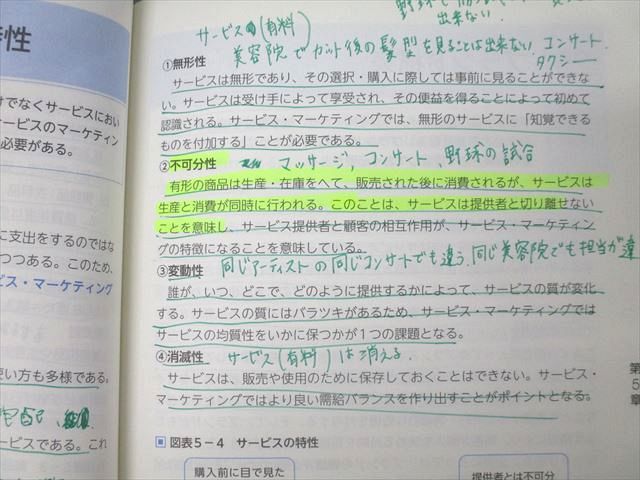 野球
出来ない.
サービス(有料)
美容院でカット後の髪型を見ることは出来ない. コンサート.
タクシー
①無形性
サービスは無形であり、その選択・購入に際しては事前に見ることができな
い。サービスは受け手によって享受され、その便益を得ることによって初めて
認識される。サービス・マーケティングでは、無形のサービスに「知覚できる
ものを付加する」ことが必要である。
②不可分性 マッサージ, コンサート、野球の試合
有形の商品は生産・在庫をへて、販売された後に消費されるが、サービスは
生産と消費が同時に行われる。このことは、サービスは提供者と切り離せない
ことを意味し、サービス提供者と顧客の相互作用が、サービス・マーケティン
グの特徴になることを意味している。
③変動性 同じアーティストの同じコンサートでも違う. 同じ美容院でも担当が違
誰が、いつ、どこで、どのように提供するかによって、サービスの質が変化
する。サービスの質にはバラツキがあるため、サービス・マーケティングでは
サービスの均質性をいかに保つかが1つの課題となる。
④消滅性 サービス(有料)は消える.
サービスは、販売や使用のために保存しておくことはできない。サービス・
マーケティングではより良い需給バランスを作り出すことがポイントとなる。
図表5-4 サービスの特性
購入前に目で見た
提供者とは不可分
第
5
章
特性
けでなくサービスにおい
ービスのマーケティン
必要がある。
に支出をするのではな
つつある。このため、
ビス・マーケティング
い方も多様である。
宅配
ービスである。これ